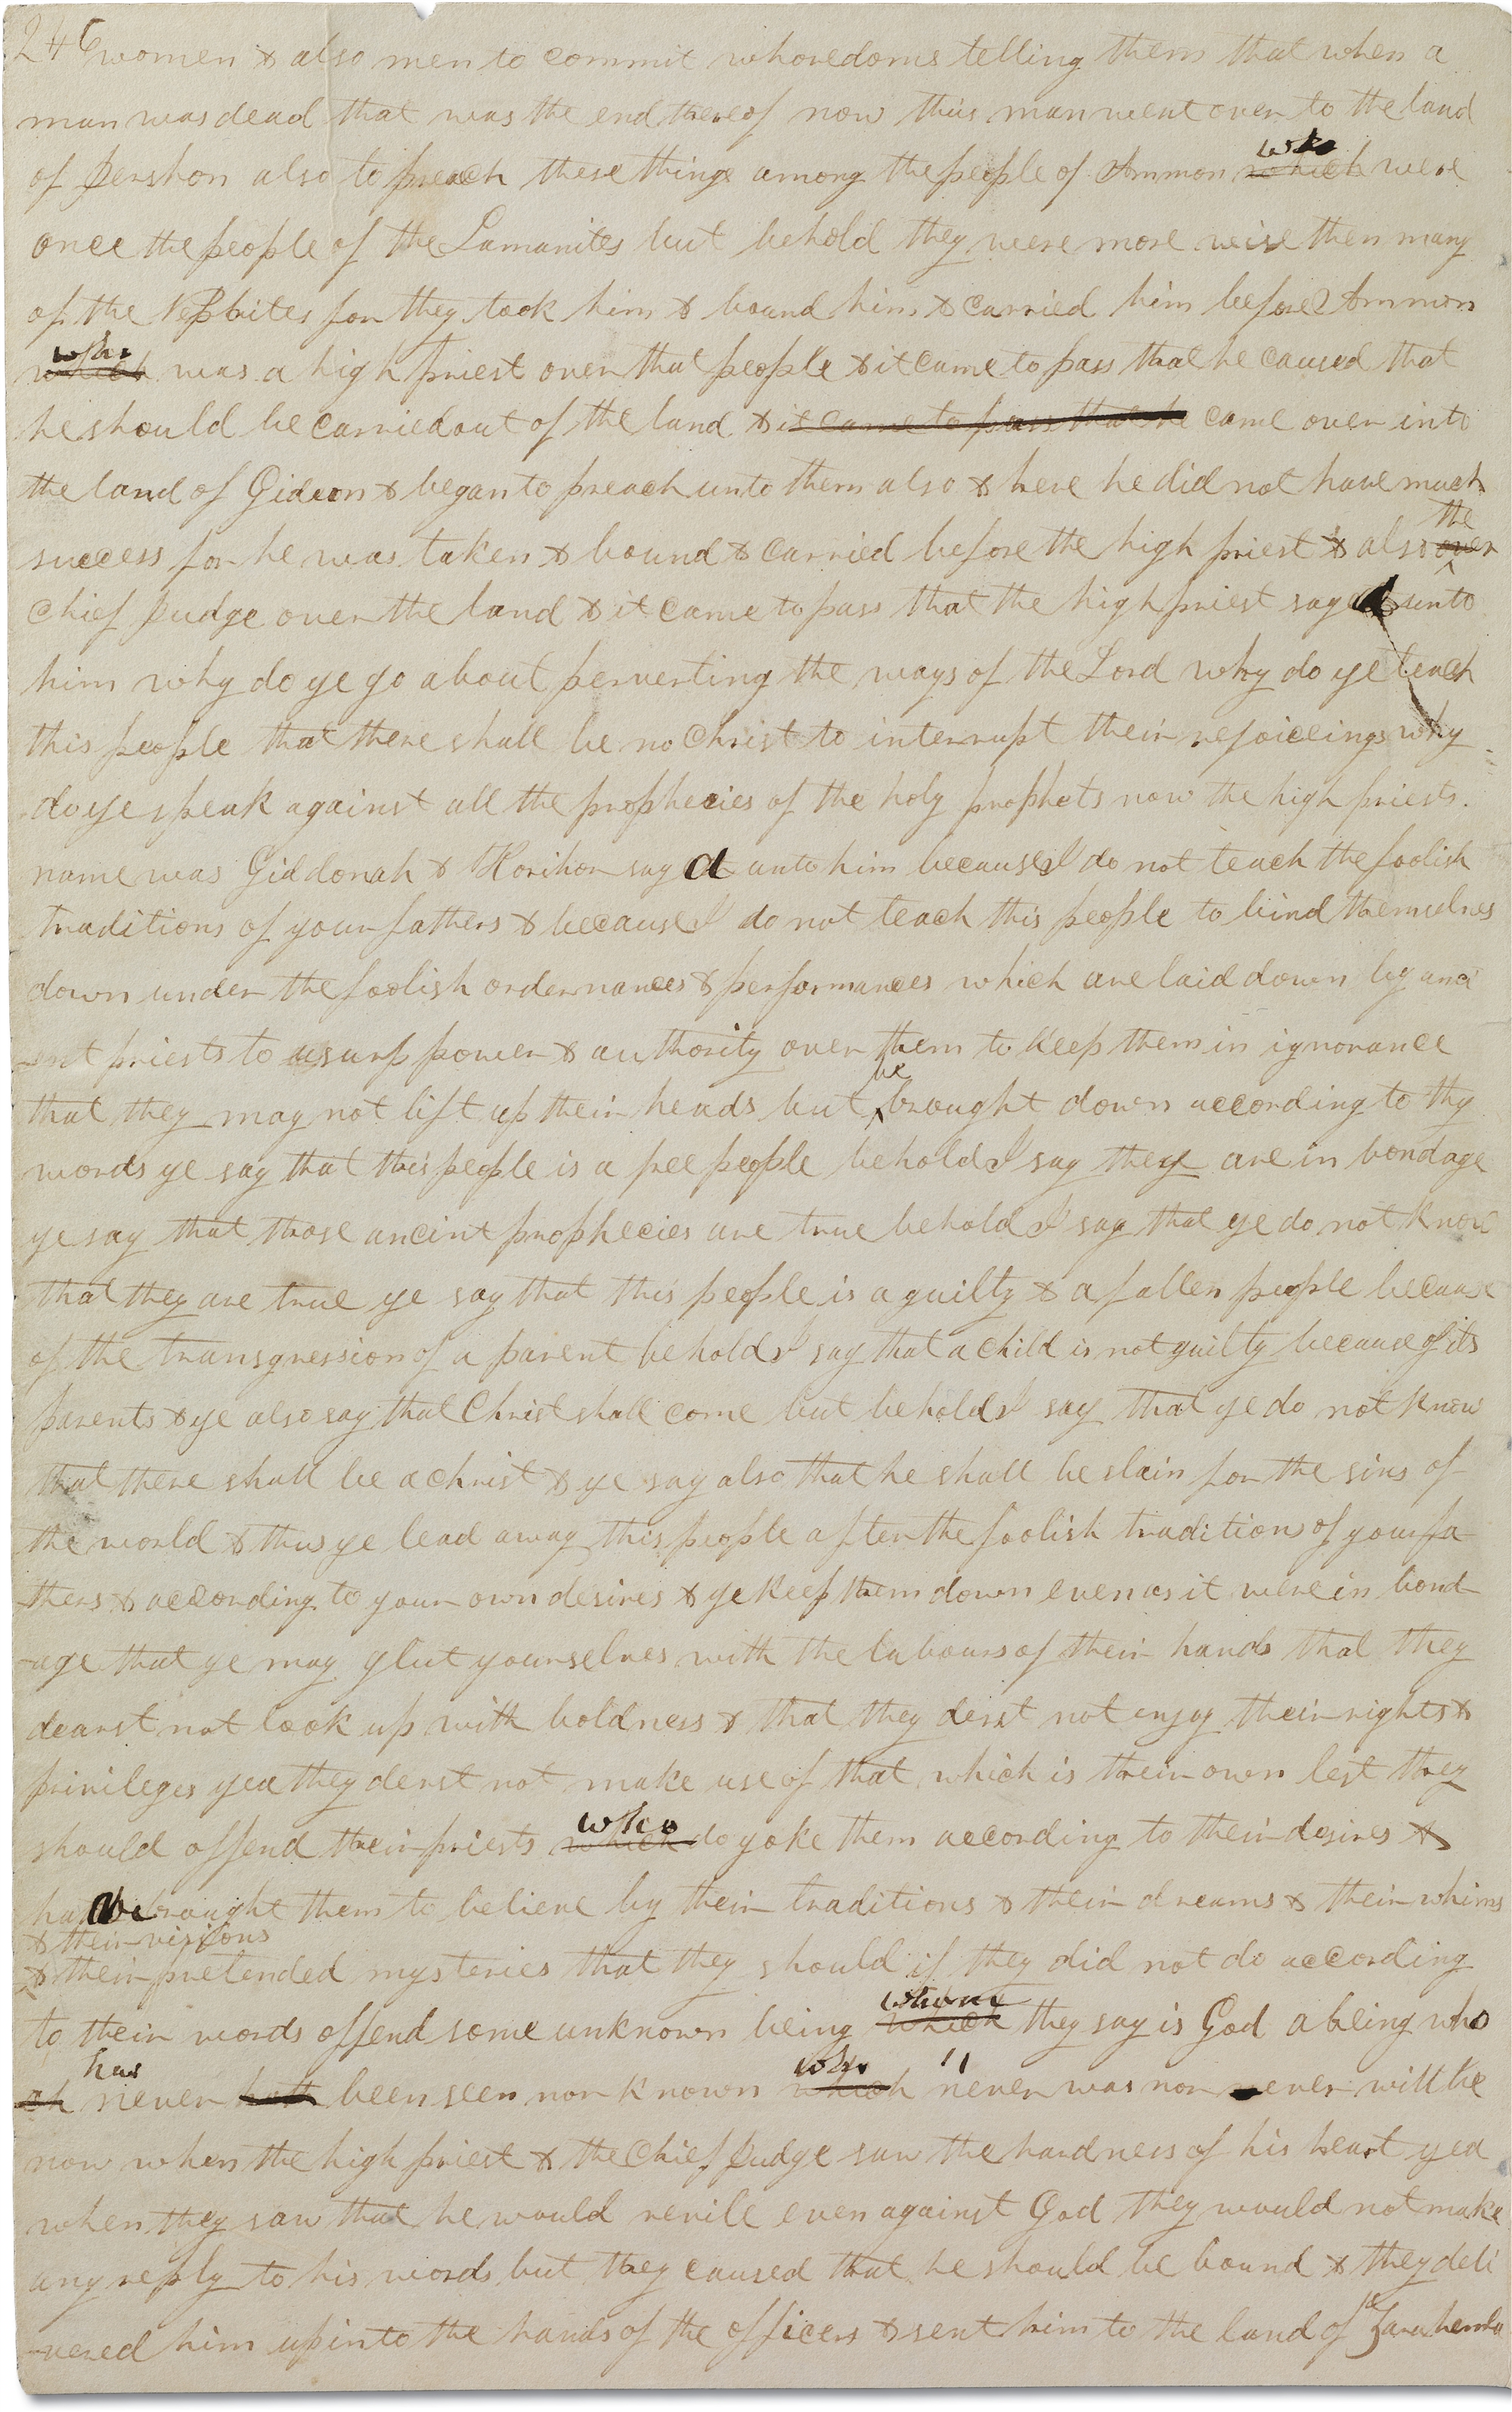 246 women & also men to commit whoredoms telling them that when a
man was dead that was the end thereof now this man went over to the land
of Jershon also to preach these things among the people of Ammon which who were
once the people of the Lamanites but behold they were more wise then many
of the Nephites for they took him & bound him & carried him before Ammon
which who was a high priest over that people & it came to pass that he caused that
he should be carried out of the land & it came to pass that he came over into
the land of Gideon & began to preach unto them also & here he did not have much
success for he was taken & bound & carried before the high priest & also over the
chief Judge over the land & it came to pass that the high priest said unto
him why do ye go about perverting the ways of the Lord why do ye teach
this people that there shall be no Christ to interrupt their rejoiceings why
do ye speak against all the prophecies of the holy prophets now the high priests
name was Giddonah & Korihor said unto him because I do not teach the foolish
traditions of your fathers & because I do not teach this people to bind themselves
down under the foolish ordernances & performances which are laid down by anci
-ent priests to usurp power & authority over them to keep them in ignorance
that they may not lift up their heads but be brought down according to thy
words ye say that this people is a free people behold I say they are in bondage
ye say that those ancint prophecies are true behold I say that ye do not know
that they are true ye say that this people is a guilty & a fallen people because
of the transgression of a parent behold I say that a child is not guilty because of its
parents & ye also say that Christ shall come but behold I say that ye do not know
that there shall be a christ & ye say also that he shall be slain for the sins of
the world & thus ye lead away this people after the foolish traditions of your fa
-thers & according to your own desires & ye keep them down even as it were in bond
-age that ye may glut yourselves with the labours of their hands that they
dearst not look up with boldness & that they derst not enjoy their rights &
privileges yea they derst not make use of that which is their own lest they
should offend their priests which who do yoke them according to their desires &
have brought them to believe by their traditions & their dreams & their whims
& their visions
& their pretended mysteries that they should if they did not do according
to their words offend some unknown being which whom they say is God a being who
ch has never hath been seen nor known which who never was nor ever will be
now when the high priest & the Chief Judge saw the hardness of his heart yea
when they saw that he would revile even against God they would not make
any reply to his words but they caused that he should be bound & they deli
-vered him up into the hands of the officers & sent him to the land of Zarahemla